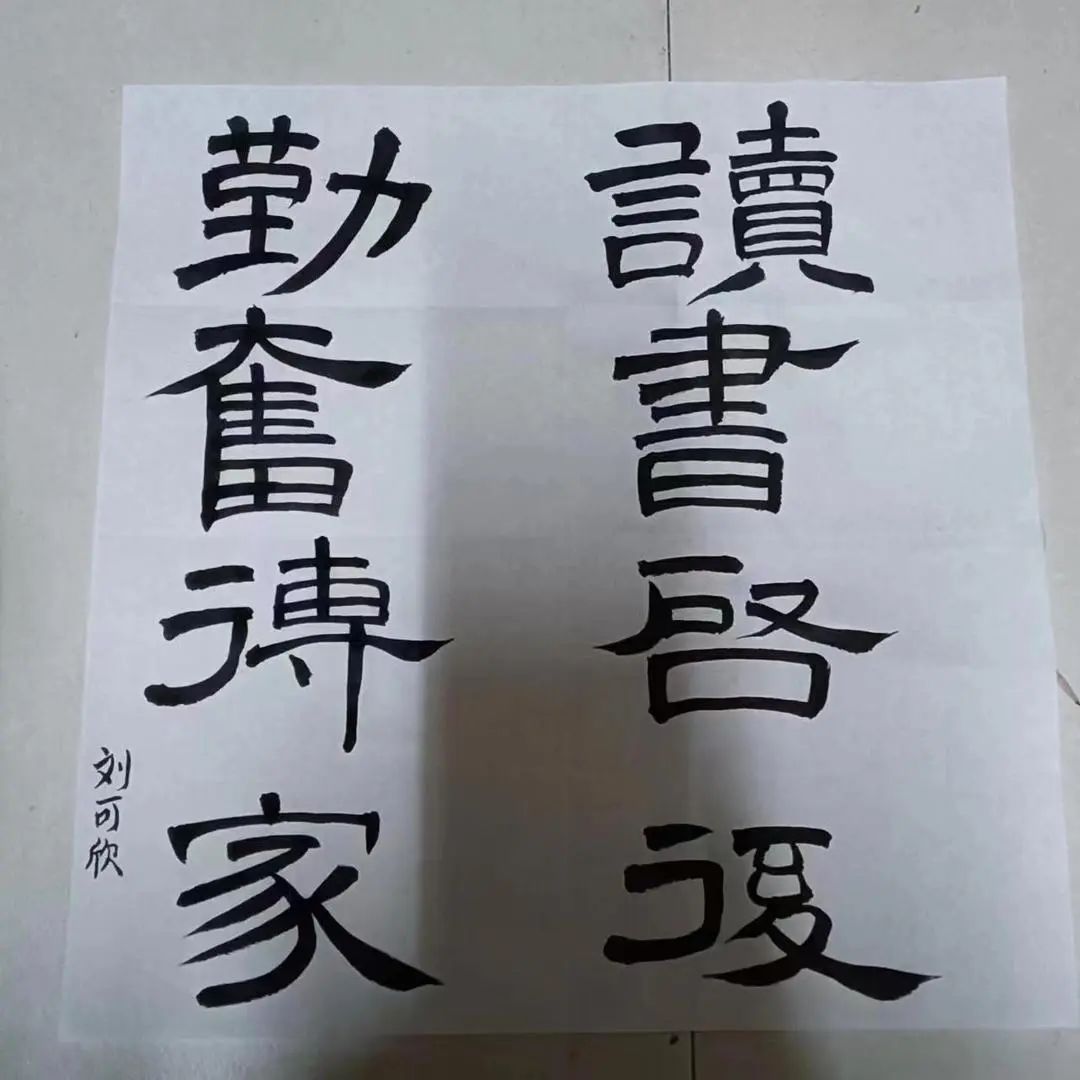 讀書啓後
勤奮傳家
刘可欣